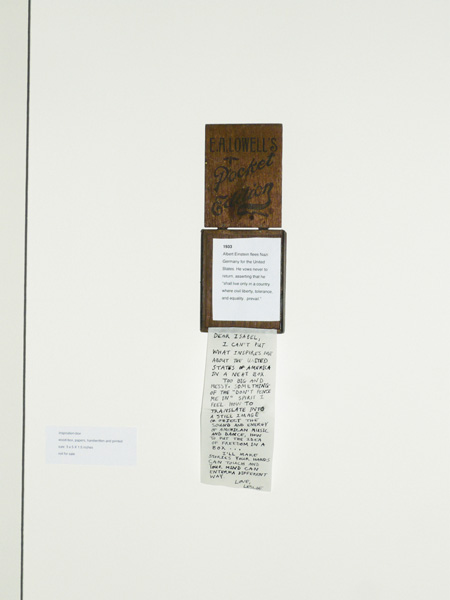 E.A. LOWELL'S
Pocket
Edition
1933
Albert Einstein flees Nazi
Germany for the United
States. He vows never to
return, asserting that he
"shall live only in a country
where civil liberty, tolerance,
and equality.. prevail."
DEAR ISABEL,
I CAN'T PUT
WHAT INSPIRES ME
ABOUT THE UNITED
STATES OF AMERICA
IN A NEAT BOX
TOO BIG AND
MESSY. SOMETHING
OF THE "DON'T FENCE
ME IN" SPIRIT I
FEEL. HOW TO
TRANSLATE INTO
A STILL IMAGE
OR OBJECT THE
SOUND AND ENERGY
OF AMERICAN MUSIC
AND DANCE, HOW
TO PUT THE IDEA
OF FREEDOM IN A
BOX...
I'LL MAKE
STORIES YOUR HANDS
CAN TOUCH AND
YOUR MIND CAN
ENTER IN A DIFFERENT
WAY.
LOVE,
LESLIE
not for sale